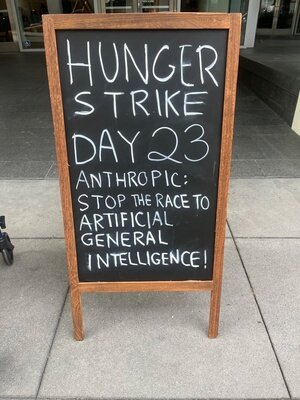 HUNGER
STRIKE
DAY 23
ANTHROPIC:
STOP THE RACE TO
ARTIFICIAL
GENERAL
INTELLIGENCE!